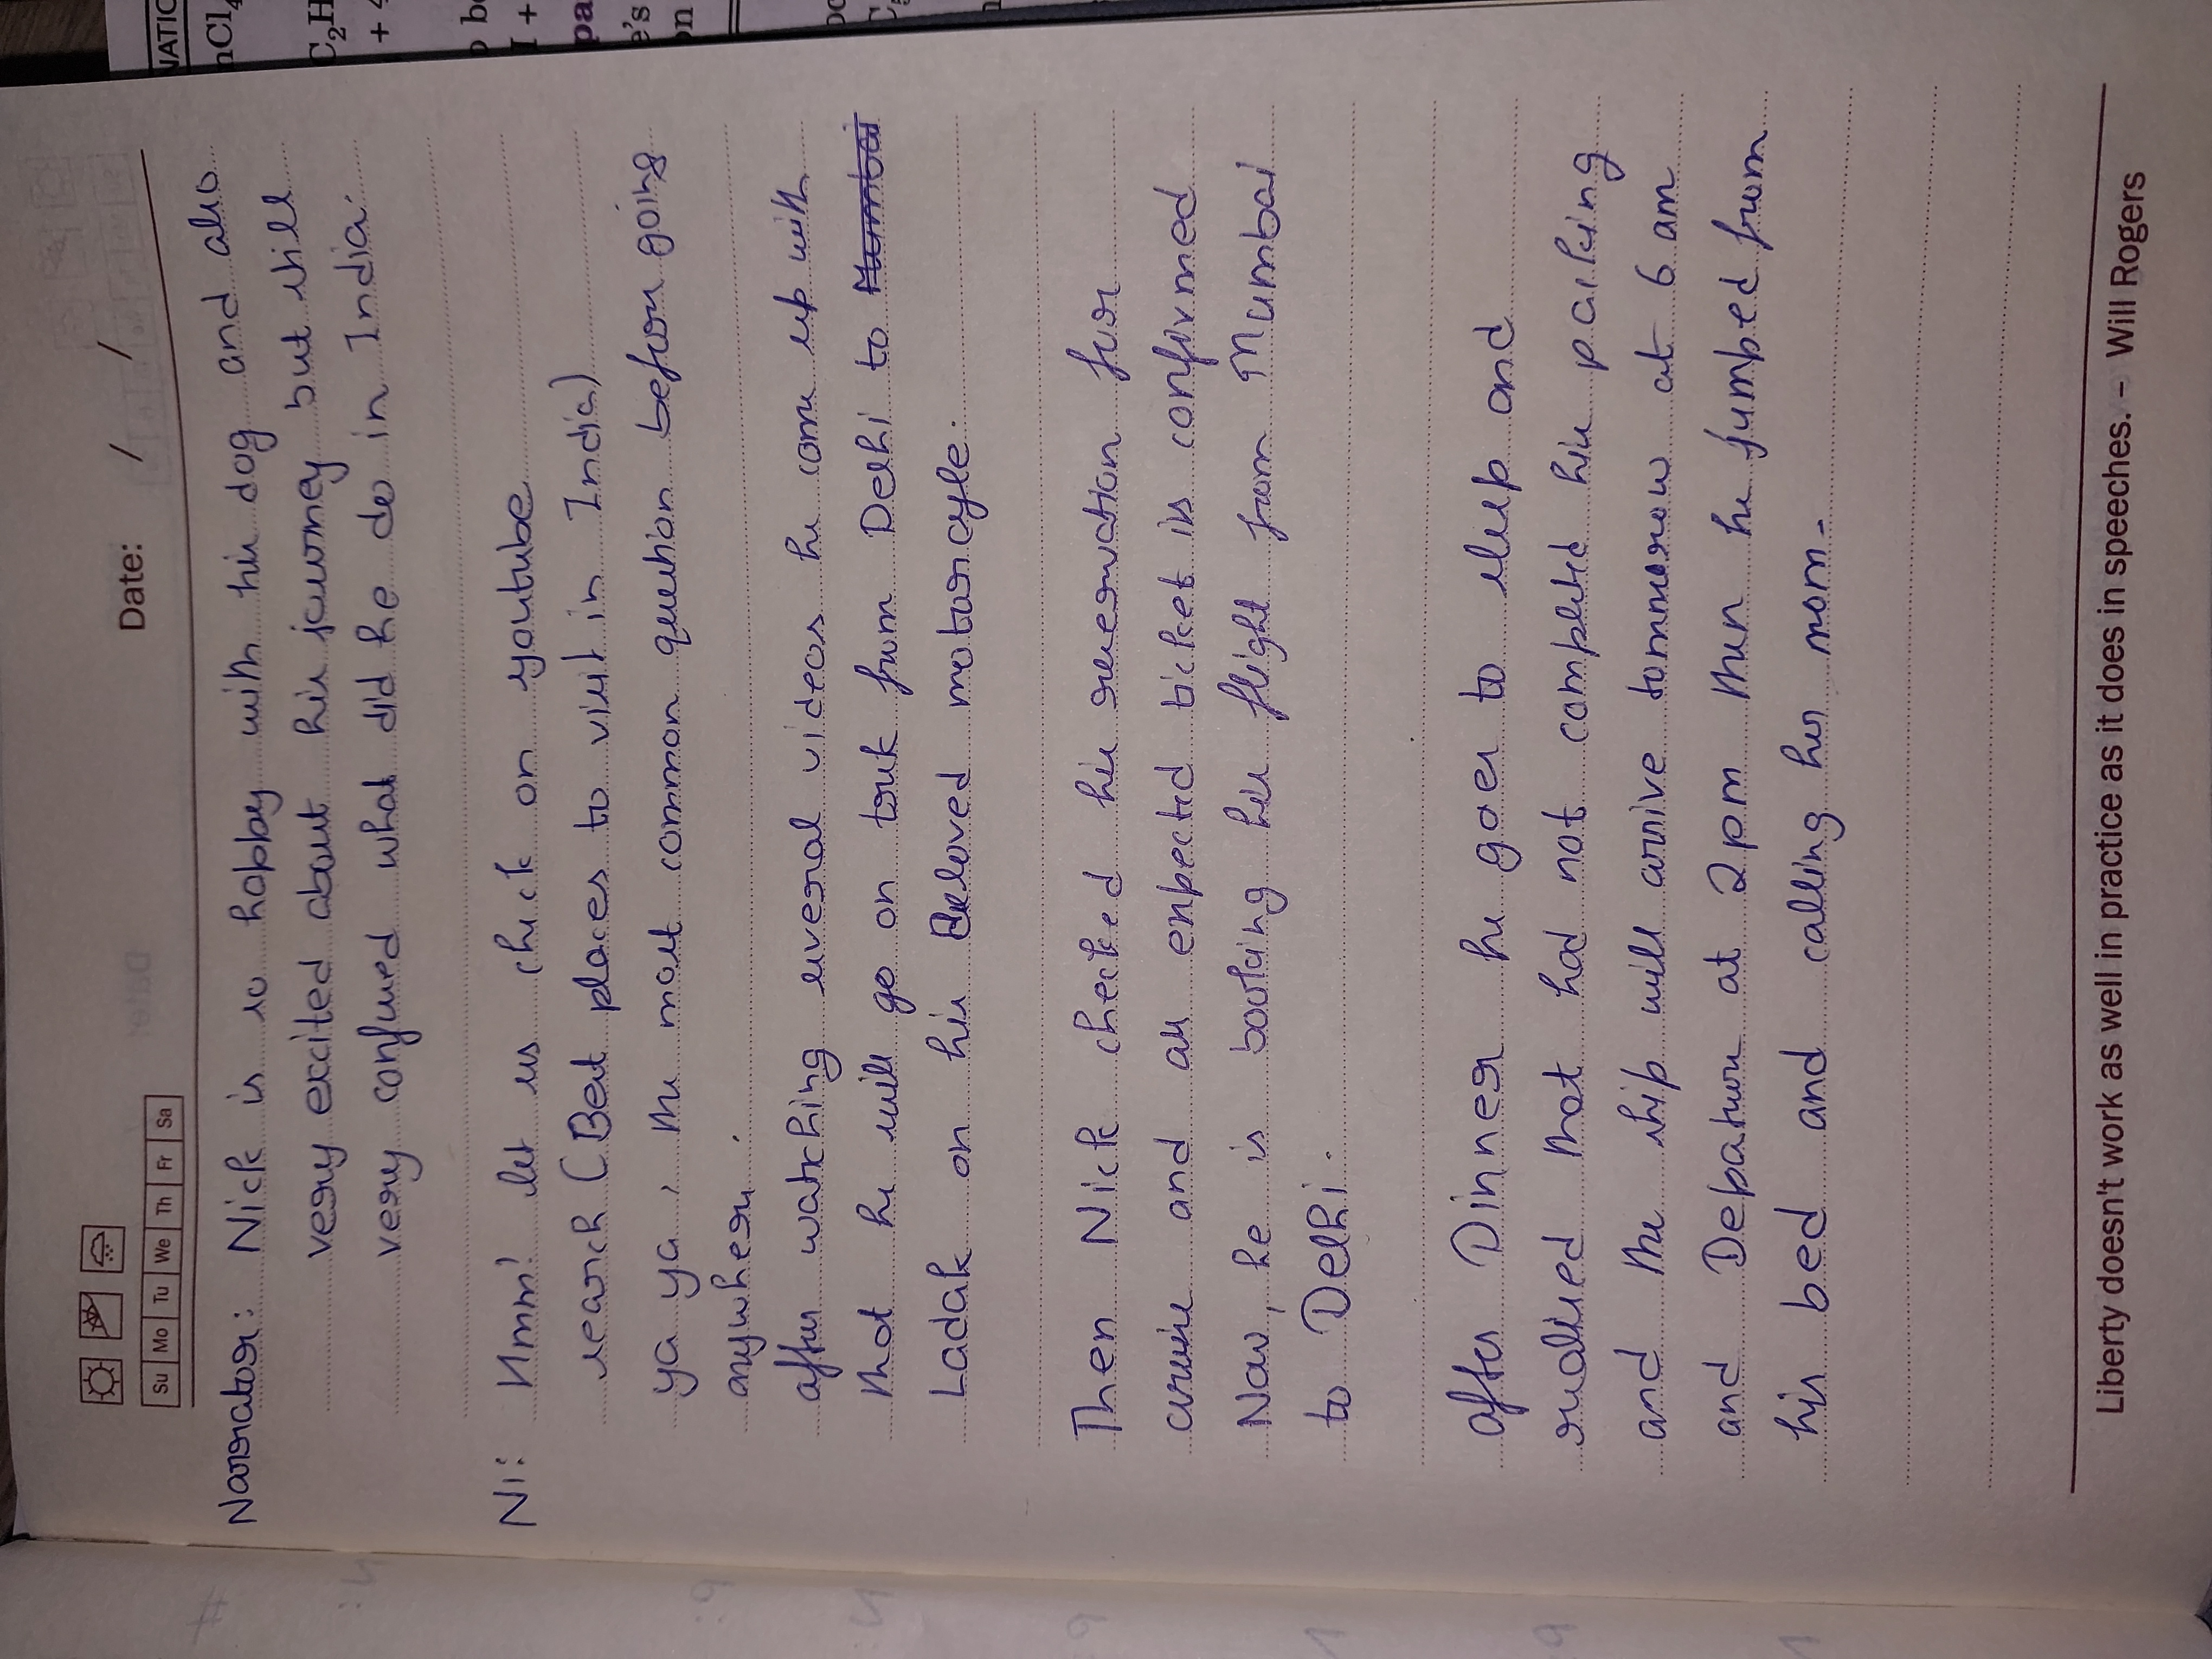 Su Mo Tu We Th Fr Sa
Date: / /
Narrator: Nick is so happy with his dog and also
very excited about his journey but still
very confused what did he do in India.
Ni: Hmm! let us check on youtube
search (Best places to visit in India)
ya ya, the most common question before going
anywhere.
after watching several videos he come up with
that he will go on trek from Delhi to Mumbai
Ladak on his Beloved motorcyle.
Then Nick checked his reservation for
cruise and as expected ticket is confirmed
Now, he is booking his flight from Mumbai
to Delhi.
after Dinner he goes to sleep and
realised that had not completed his packing
and the ship will arrive tommorow at 6 am
and Depature at 2 pm then he jumped from
his bed and calling her mom.
Liberty doesn't work as well in practice as it does in speeches. – Will Rogers